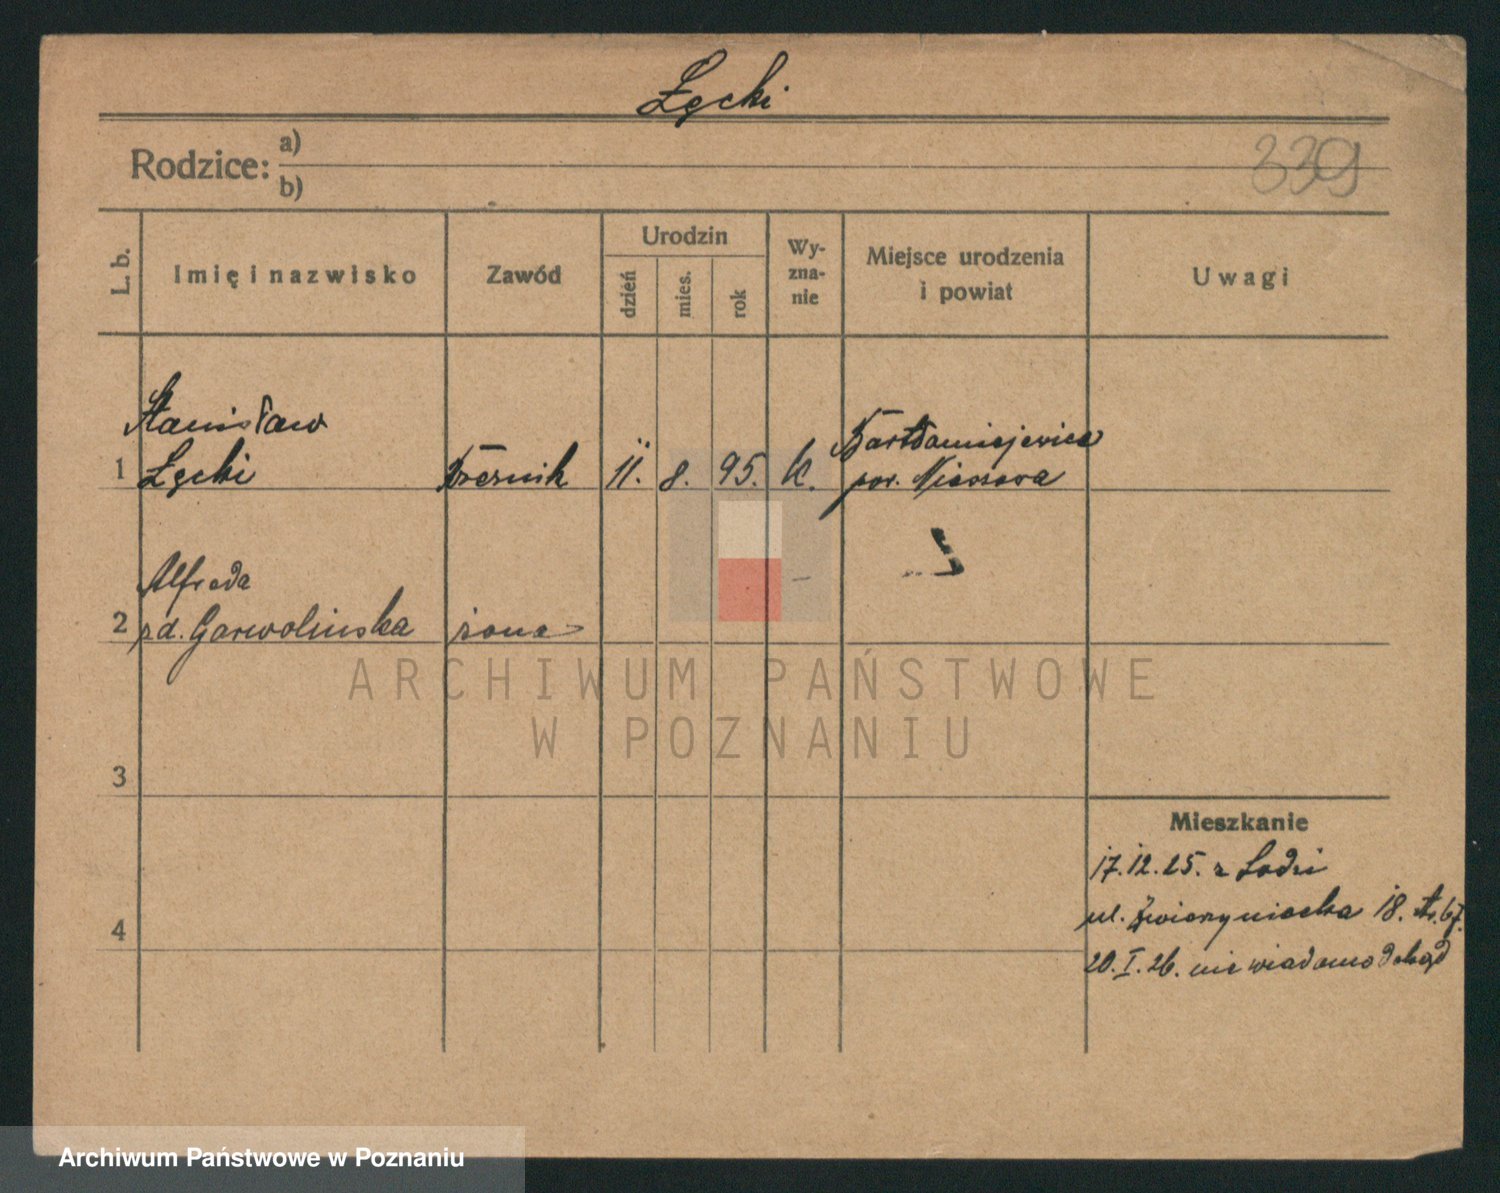 Łęcki
Rodzice: a)
b)
339
L. b.
Imię i nazwisko
Zawód
Urodzin
dzień
mies.
rok
Wy-
zna-
nie
Miejsce urodzenia
i powiat
Uwagi
Stanisław
1 Łęcki
11. 8. 95. K.
pow.
Alfreda
2 rd. Garwolińska żona
3
4
Mieszkanie
17.12.25. z Łodzi
ul. Zwierzyniecka 18.
20. I. 26. nie wiadomo dokąd
ARCHIWUM PAŃSTWOWE
W POZNANIU
Archiwum Państwowe w Poznaniu